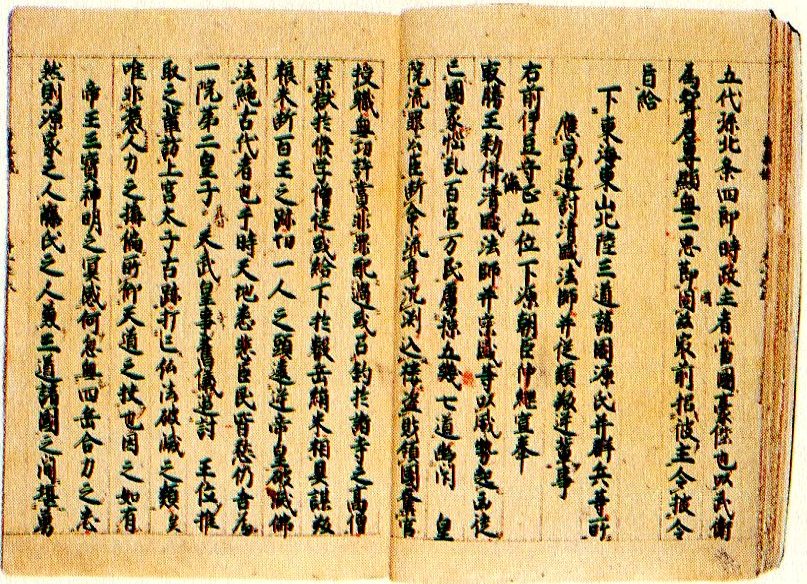 五代孫北条四郎時政主者當國豪傑也以武衛
為聟君專顯無二忠節因茲最前招彼主令披令
旨給
下東海東山北陸三道諸國源氏并群兵等所
應早追討清盛法師并從類叛逆輩事
右前伊豆守正五位下源朝臣仲綱宣奉
最勝王勅偁清盛法師并宗盛等以威勢起凶徒
亡國家惱乱百官万民虜掠五畿七道幽閇 皇
院流罪公臣断命流身沉渕込樓盗財領國奪官
授職無功許賞非罪配過或召釣於諸寺之高僧
禁獄於修学僧徒或給下於叡岳絹米相具謀叛
粮米断百王之跡切一人之頭違逆帝皇破滅佛
法絶古代者也于時天地悉悲臣民皆愁仍吾為
一院第二皇子尋 天武皇帝舊儀追討 王位推
取之輩訪上宮太子古跡打亡仏法破滅之類矣
唯非憑人力之搆偏所仰天道之扶也因之如有
帝王三寳神明之冥感何忽無四岳合力之志
然則源家之人藤氏之人兼三道諸國之間堪勇